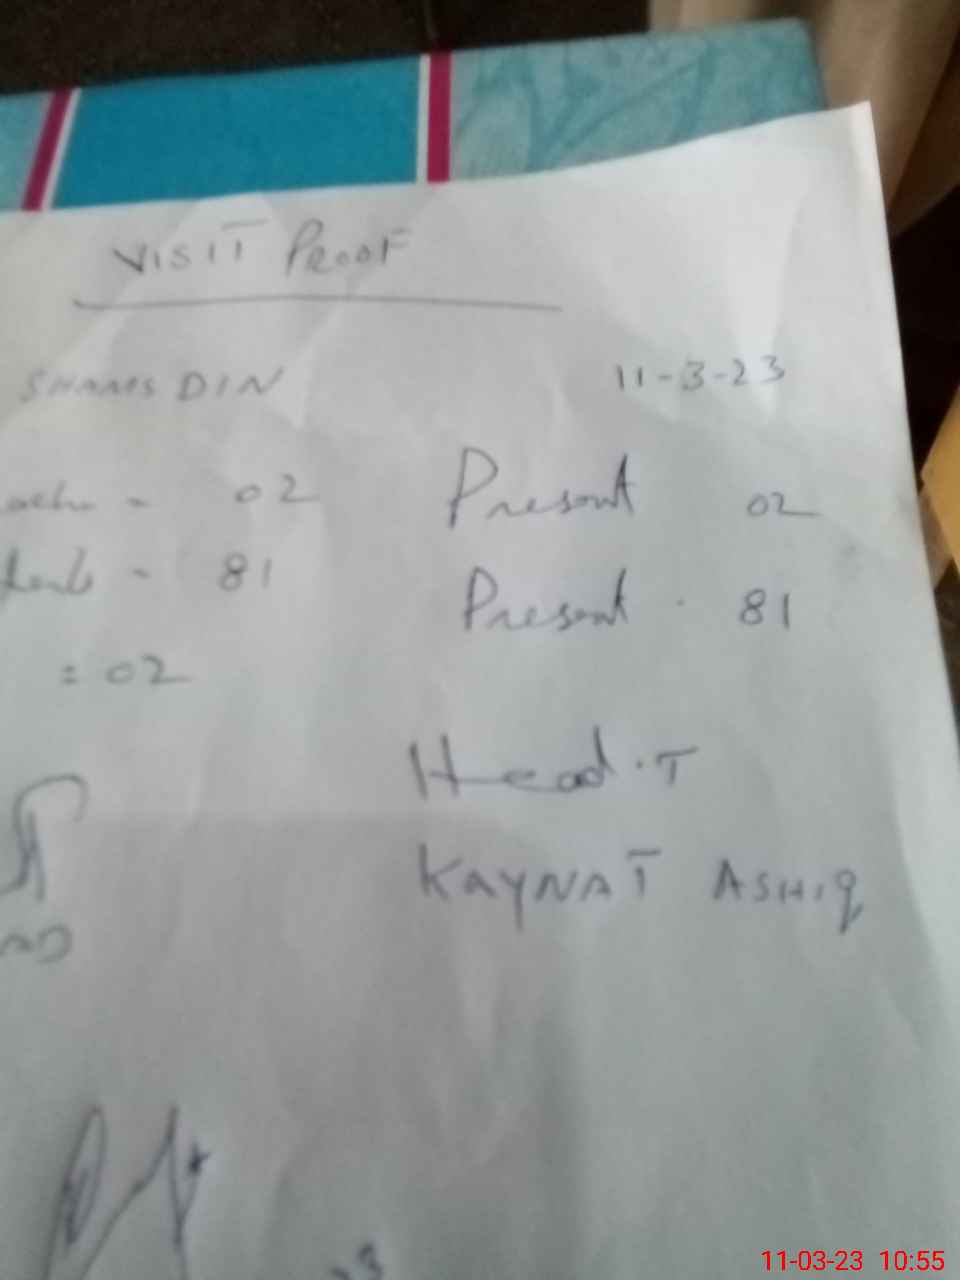 VISIT PROOF
SHAMS DIN 11-3-23
- 02 Present 02
- 81 Present . 81
= 02
Head.T
KAYNAT ASHIQ
11-03-23 10:55